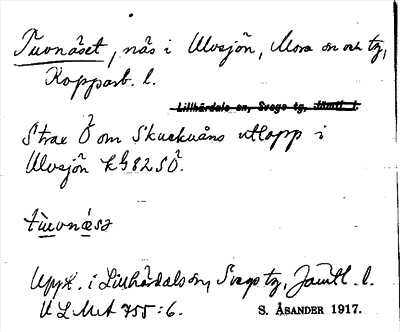 Tuvnäset, näs i Ulvsjön, Mora sn och tg,
Kopparb. l.
Lillhärdals sn, Svegs tg, Jämtl. l.
Strax Ö om Skuckuåns utlopp i
Ulvsjön Kg 82 SÖ.
tùovnǽsə
Uppt. i Lillhärdals sn, Svegs tg, Jämtl. l.
ULMA 755:6. S. ÅSANDER 1917.